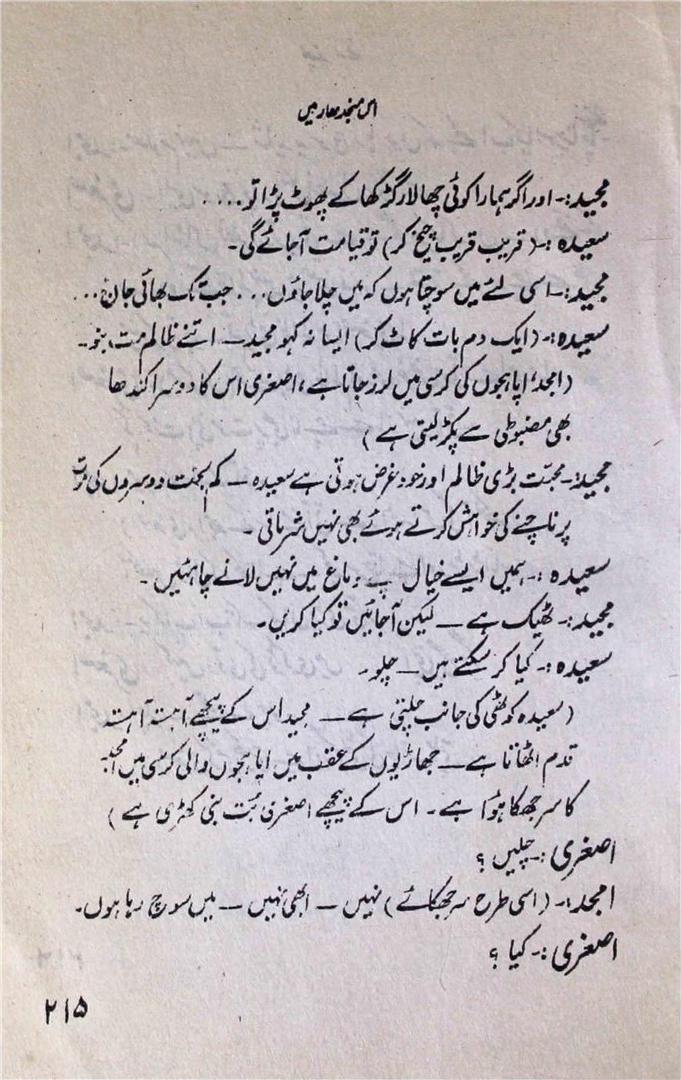 اس منجدھار میں
مجید:۔ اور اگر ہمارا کوئی چھالا رگڑ کھا کے پھوٹ پڑا تو ....
سعیدہ:۔ (قریب قریب چیخ کر) تو قیامت آجائے گی۔
مجید:۔ اسی لئے میں سوچتا ہوں کہ میں چلا جاؤں ... جب تک بھائی جان ...
سعیدہ:۔ (ایک دم بات کاٹ کر) ایسا نہ کہو مجید — اتنے ظالم مت بنو۔
(امجد اپاہجوں کی کرسی میں لرز جاتا ہے، اصغری اس کا دوسرا کندھا
بھی مضبوطی سے پکڑ لیتی ہے)
مجید:۔ محبت بڑی ظالم اور خود غرض ہوتی ہے سعیدہ — کم بخت دوسروں کی
پر ناچنے کی خواہش کرتے ہوئے بھی نہیں شرماتی۔
سعیدہ:۔ ہمیں ایسے خیال دماغ میں نہیں لانے چاہئیں۔
مجید:۔ ٹھیک ہے — لیکن آجائیں تو کیا کریں۔
سعیدہ:۔ کیا کر سکتے ہیں — چلو۔
(سعیدہ کوٹھی کی جانب چلتی ہے — مجید اس کے پیچھے آہستہ آہستہ
قدم اٹھاتا ہے — جھاڑیوں کے عقب میں اپاہجوں والی کرسی میں امجد
کا سر جھکا ہوا ہے۔ اس کے پیچھے اصغری بت بنی کھڑی ہے)
اصغری:۔ چلیں؟
امجد:۔ (اسی طرح سر جھکائے) نہیں — ابھی نہیں — میں سوچ رہا ہوں۔
اصغری:۔ کیا؟
۲۱۵